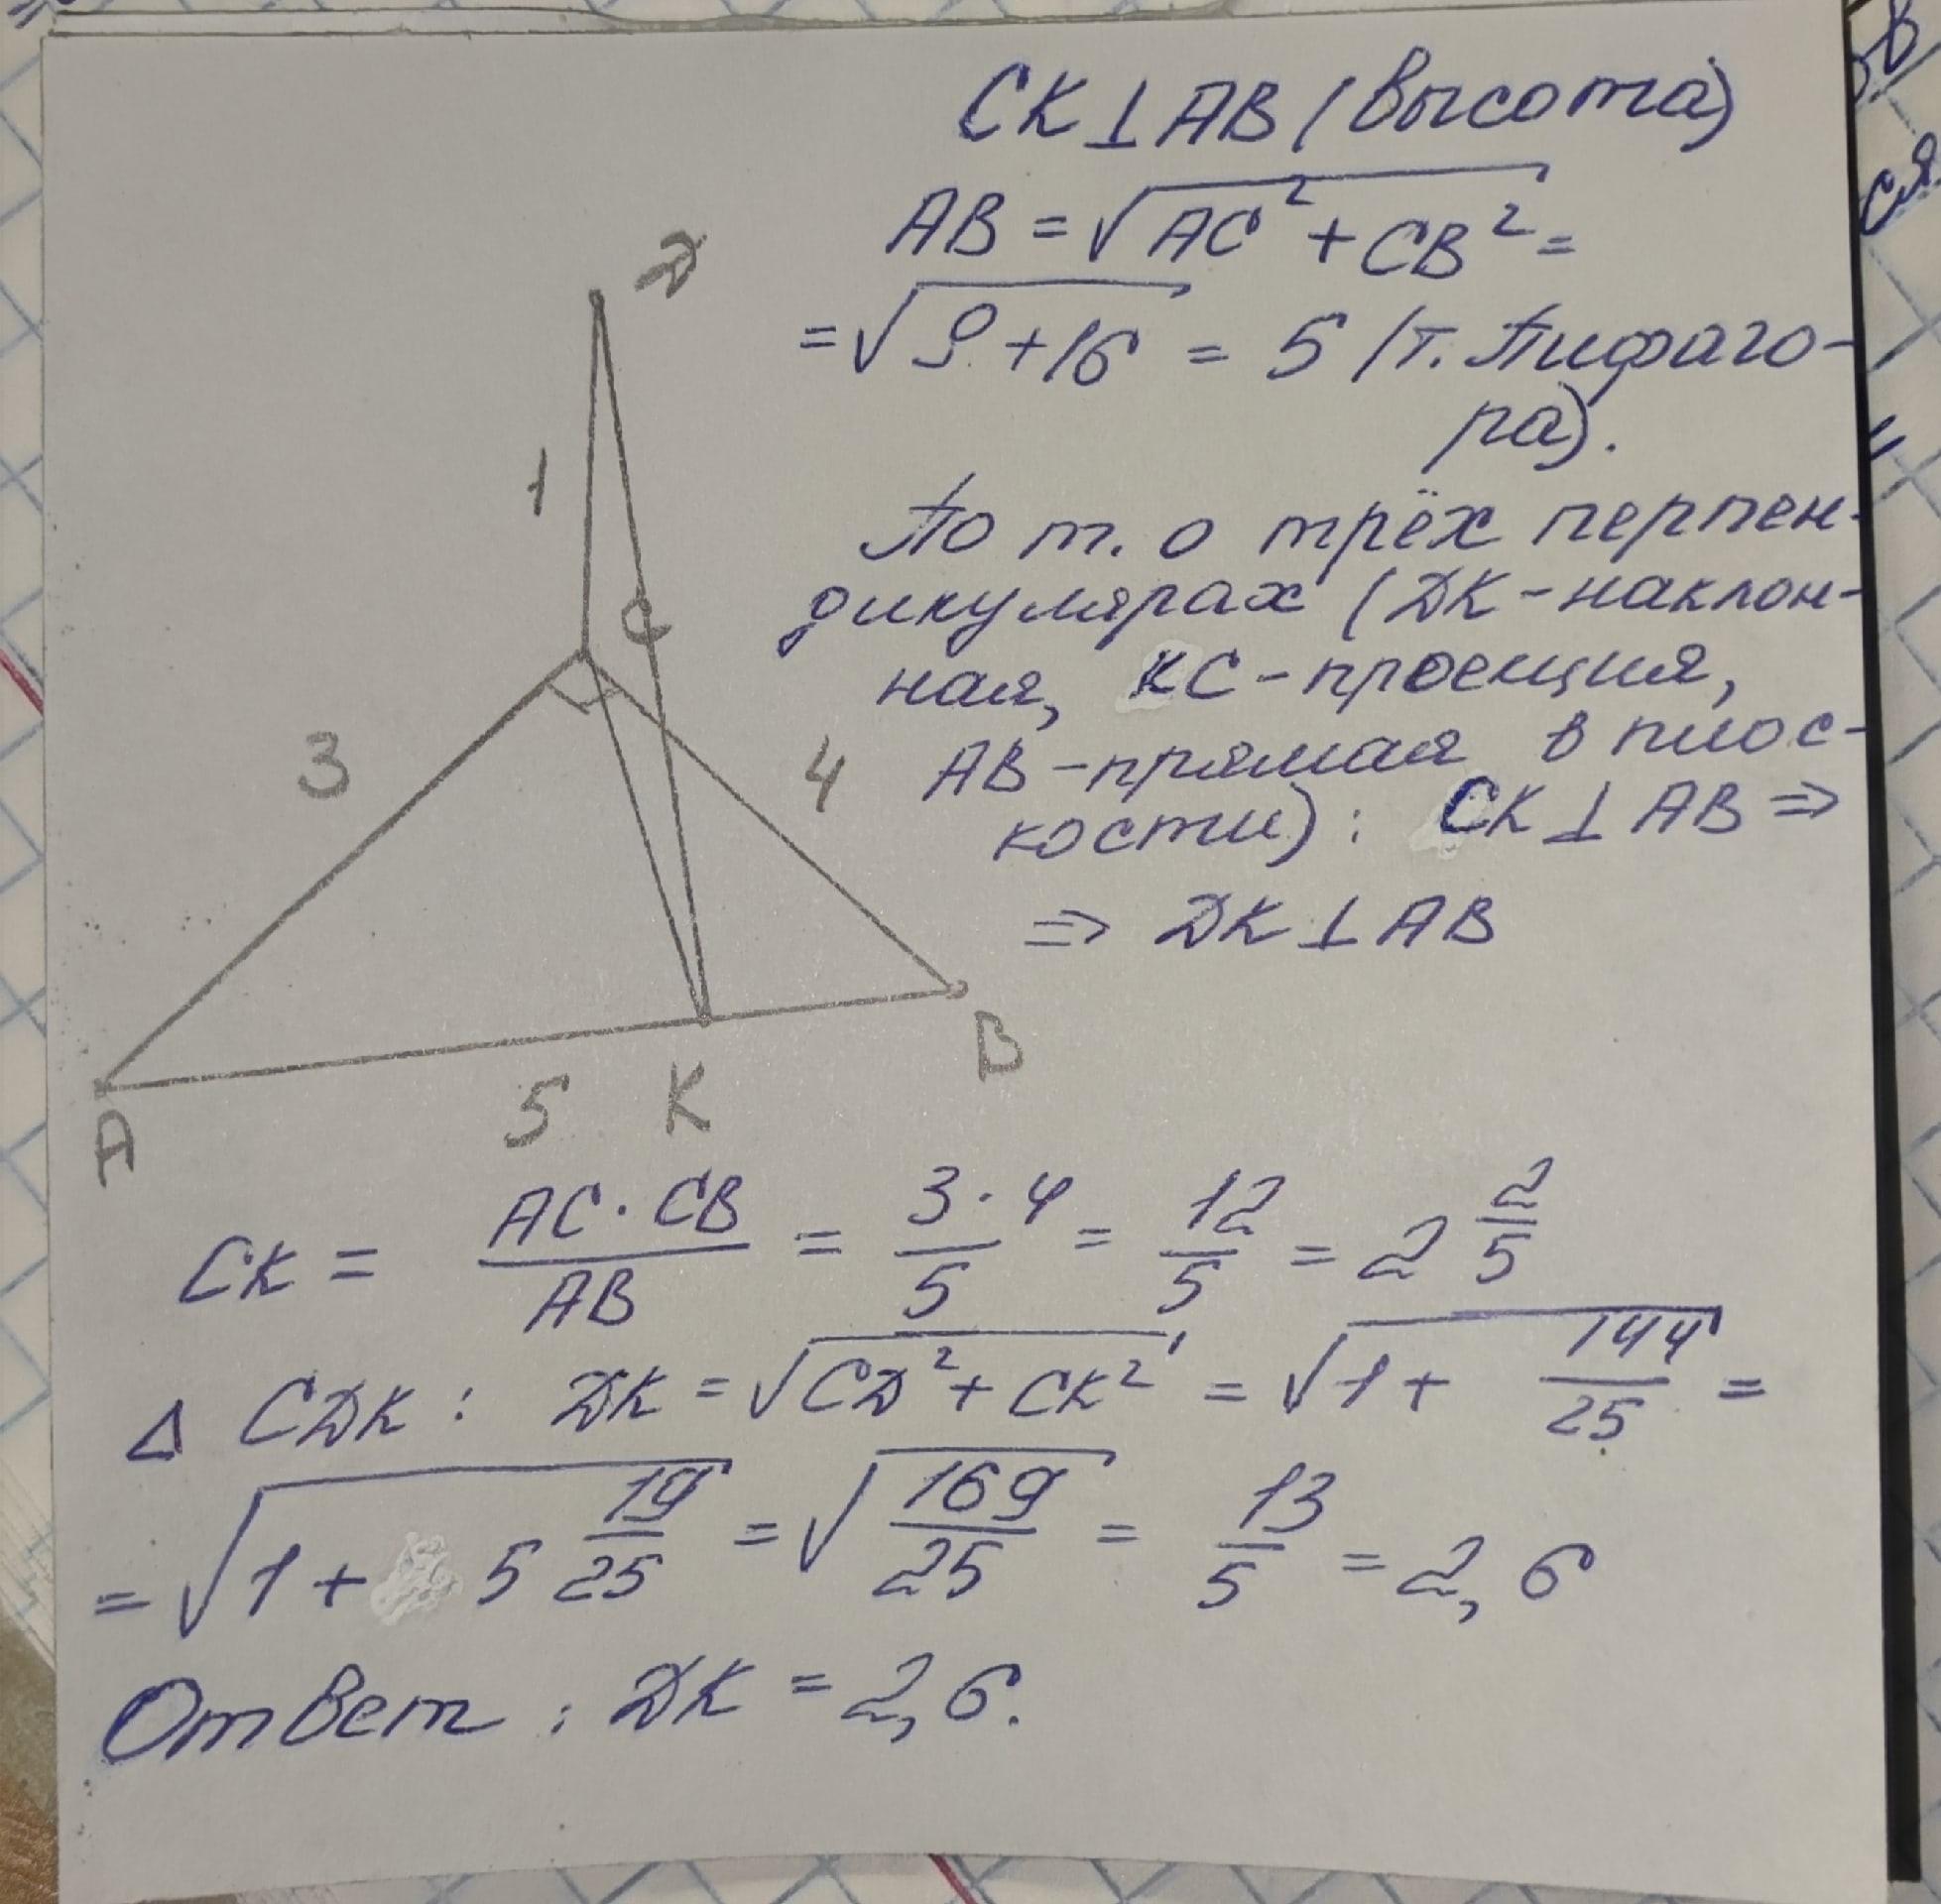 CK⊥AB (высота)
AB = √AC² + CB² =
= √9 + 16 = 5 (т. Пифаго-
ра).
По т. о трёх перпен-
дикулярах (DK - наклон-
ная, KC - проекция,
AB - прямая в плос-
кости) : CK ⊥ AB ⇒
⇒ DK ⊥ AB
D
1
C
3
4
B
5 K
A
CK = AC · CB / AB = 3 · 4 / 5 = 12/5 = 2 2/5
Δ CDK : DK = √CD² + CK² = √1 + 144/25 =
= √1 + 5 19/25 = √169/25 = 13/5 = 2,6
Ответ : DK = 2,6.